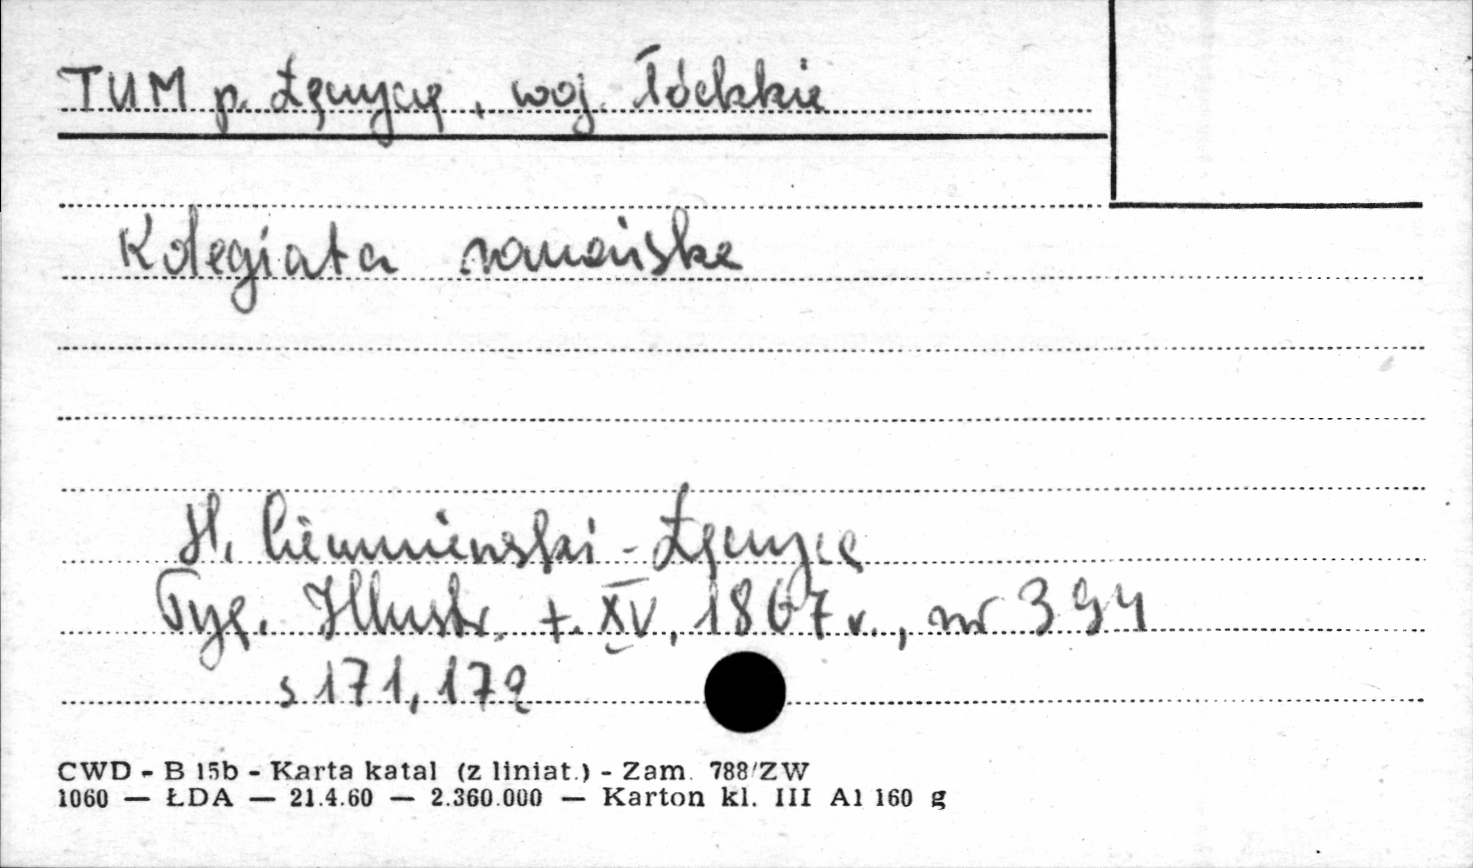 TUM p. Łęczycą, woj. łódzkie
Kolegiata romańska
H. Ciemnienski - Łęczyca
Tyg. Illustr. t. XV, 1867 r., nr 394
s 171, 172
CWD - B 15b - Karta katal (z liniat.) - Zam. 788/ZW
1060 — ŁDA — 21.4.60 — 2.360.000 — Karton kl. III A1 160 g